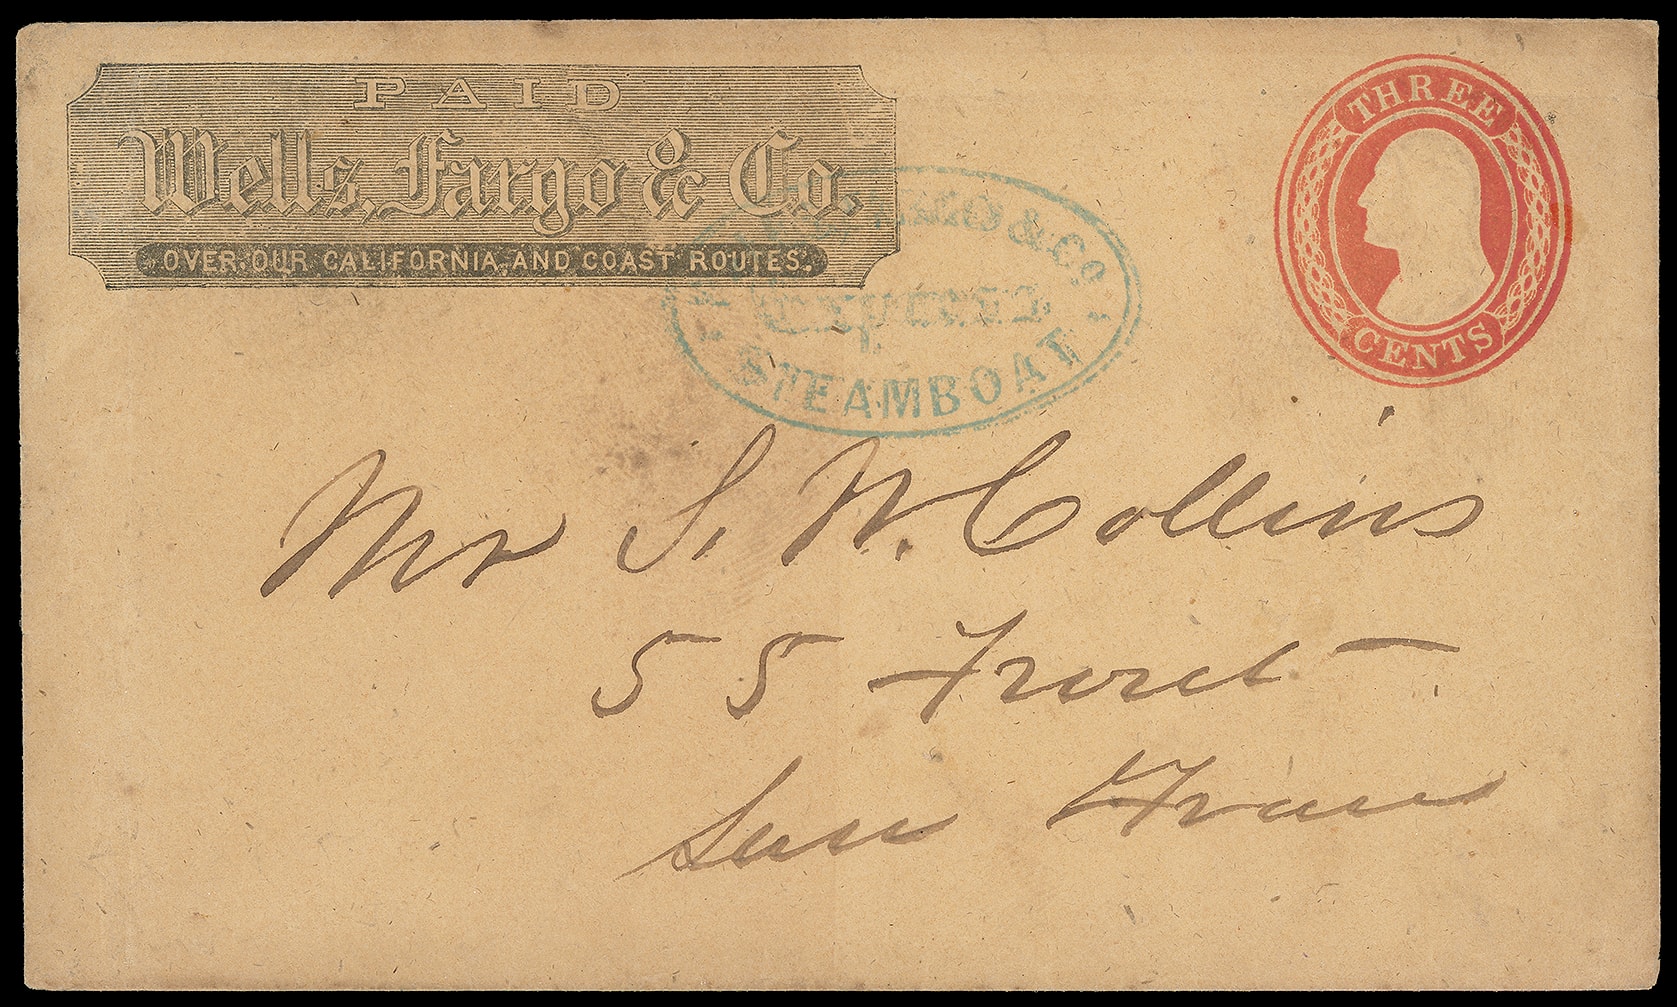 PAID
Wells, Fargo & Co.
OVER OUR CALIFORNIA, AND COAST ROUTES.
THREE
CENTS
WELLS FARGO & CO.
Express
STEAMBOAT
Mr S. W. Collins
55 Front
San Fran